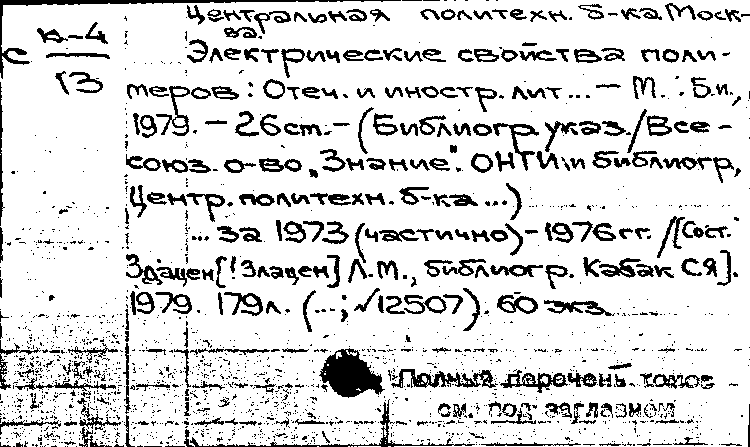 Центральная политехн. б-ка Моск-
ва
с к-4 Электрические свойства поли-
13 меров: Отеч. и иностр. лит... — М.: Б.и.,
1979. — 26 см. — (Библиогр. указ. / Все-
союз. о-во „Знание". ОНТИ и библиогр.
Центр. политехн. б-ка ...)
... за 1973 (частично) - 1976 гг. / [Сост.
Здацен [! Злацен] Л.М., библиогр. Кабак С.Я].
1979. 179л. (...; √12507). 60 экз.
Полный перечень томов
см. под заглавием